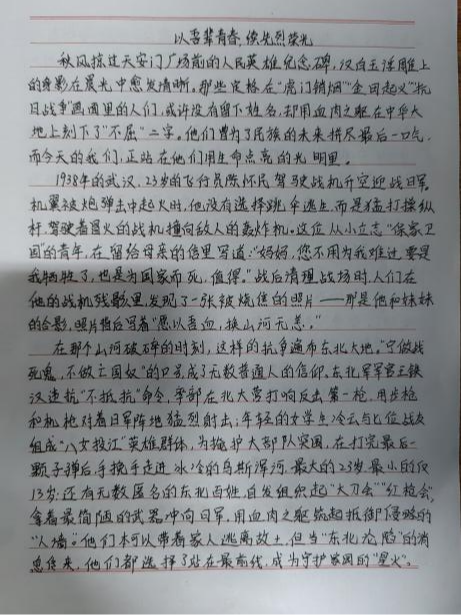 以吾辈青春,续先烈荣光
秋风掠过天安门广场前的人民英雄纪念碑,汉白玉浮雕上
的身影在晨光中愈发清晰。那些定格在“虎门销烟”“金田起义”“抗
日战争”画面里的人们,或许没有留下姓名,却用血肉之躯在中华大
地上刻下了“不屈”二字。他们曾为了民族的未来拼尽最后一口气,
而今天的我们,正站在他们用生命点亮的光明里。
1938年的武汉,23岁的飞行员陈怀民驾驶战机升空迎战日军,
机翼被炮弹击中起火时,他没有选择跳伞逃生,而是猛打操纵
杆,驾驶着冒火的战机撞向敌人的轰炸机。这位从小立志“保家卫
国”的青年,在留给母亲的信里写道:“妈妈,您不用为我难过,要是
我牺牲了,也是为国家而死,值得。”战后清理战场时,人们在
他的战机残骸里发现了一张被烧焦的照片——那是他和妹妹
的合影,照片背后写着“愿以吾血,换山河无恙。”
在那个山河破碎的时刻,这样的抗争遍布东北大地。“宁做战
死鬼,不做亡国奴”的口号成了无数普通人的信仰。东北军军官王铁
汉违抗“不抵抗”命令,率部在北大营打响反击第一枪,用步枪
和机枪对着日军阵地猛烈射击;年轻的女学生冷云与七位战友
组成“八女投江”英雄群体,为掩护大部队突围,在打完最后一
颗子弹后,手挽手走进冰冷的乌斯浑河,最大的23岁,最小的仅
13岁;还有无数匿名的东北百姓,自发组织起“大刀会”“红枪会”,
拿着最简陋的武器冲向日军,用血肉之躯筑起抵御侵略的
“人墙”。他们本可以带着家人逃离故土,但当“东北沦陷”的消
息传来,他们都选择了站在最前线,成为守护家园的“星火”。